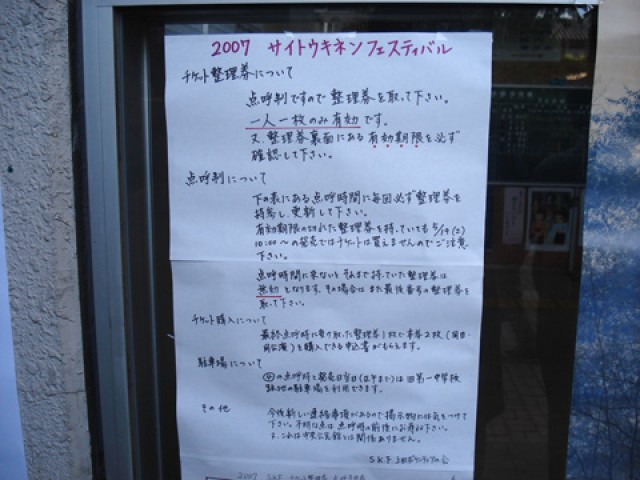 2007 サイトウキネンフェスティバル
チケット整理券について
点呼制ですので整理券を取って下さい。
一人一枚のみ有効です。
又、整理券裏面にある有効期限を必ず
確認して下さい。
点呼制について
下の表にある点呼時間に毎回必ず整理券を
持参し、更新して下さい。
有効期限の切れた整理券を持っていても 5/19(土)
10:00〜の発売ではチケットは買えませんのでご注意
下さい。
点呼時間に来ないとそれまで持っていた整理券は
無効となります。その場合はまた最後番号の整理券を
取って下さい。
チケット購入について
最終点呼時に受け取った整理券1枚で本券2枚(同日・
同公演)を購入できる申込書がもらえます。
駐車場について
の点呼時と発売日当日(正午まで)は旧第一中学校
跡地の駐車場を利用できます。
その他
今後新しい連絡事項があるので掲示物には気をつけて
下さい。不明な点は点呼時の前後にお尋ね下さい。
又、これは中央公民館とは関係ありません。
S.K.F. ボランティアの会
2007 S.K.F.